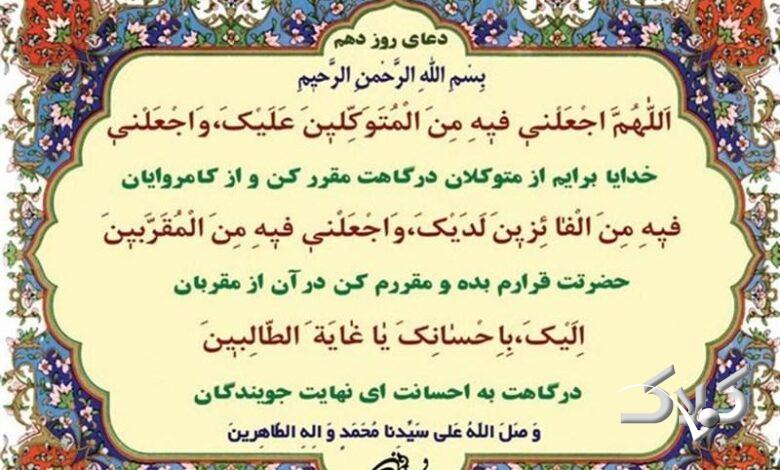 دعای روز دهم
بِسْمِ اللهِ الرَّحْمنِ الرَّحیٖمِ
اَللّٰهُمَّ اجْعَلْنیٖ فیٖهِ مِنَ الْمُتَوَکِّلیٖنَ عَلَیْکَ،وَاجْعَلْنیٖ
خدایا برایم از متوکلان درگاهت مقرر کن و از کامروایان
فیٖهِ مِنَ الْفٰائِزیٖنَ لَدَیْکَ،وَاجْعَلْنیٖ فیٖهِ مِنَ الْمُقَرَّبیٖنَ
حضرتت قرارم بده و مقررم کن در آن از مقربان
اِلَیْکَ،بِاِحْسٰانِکَ یٰا غٰایَةَ الطّٰالِبیٖنَ
درگاهت به احسانت ای نهایت جویندگان
وَ صَلَ اللهُ عَلی سَیِّدِنا مُحَمَدٍ وَ الِهِ الطّاهِرینَ